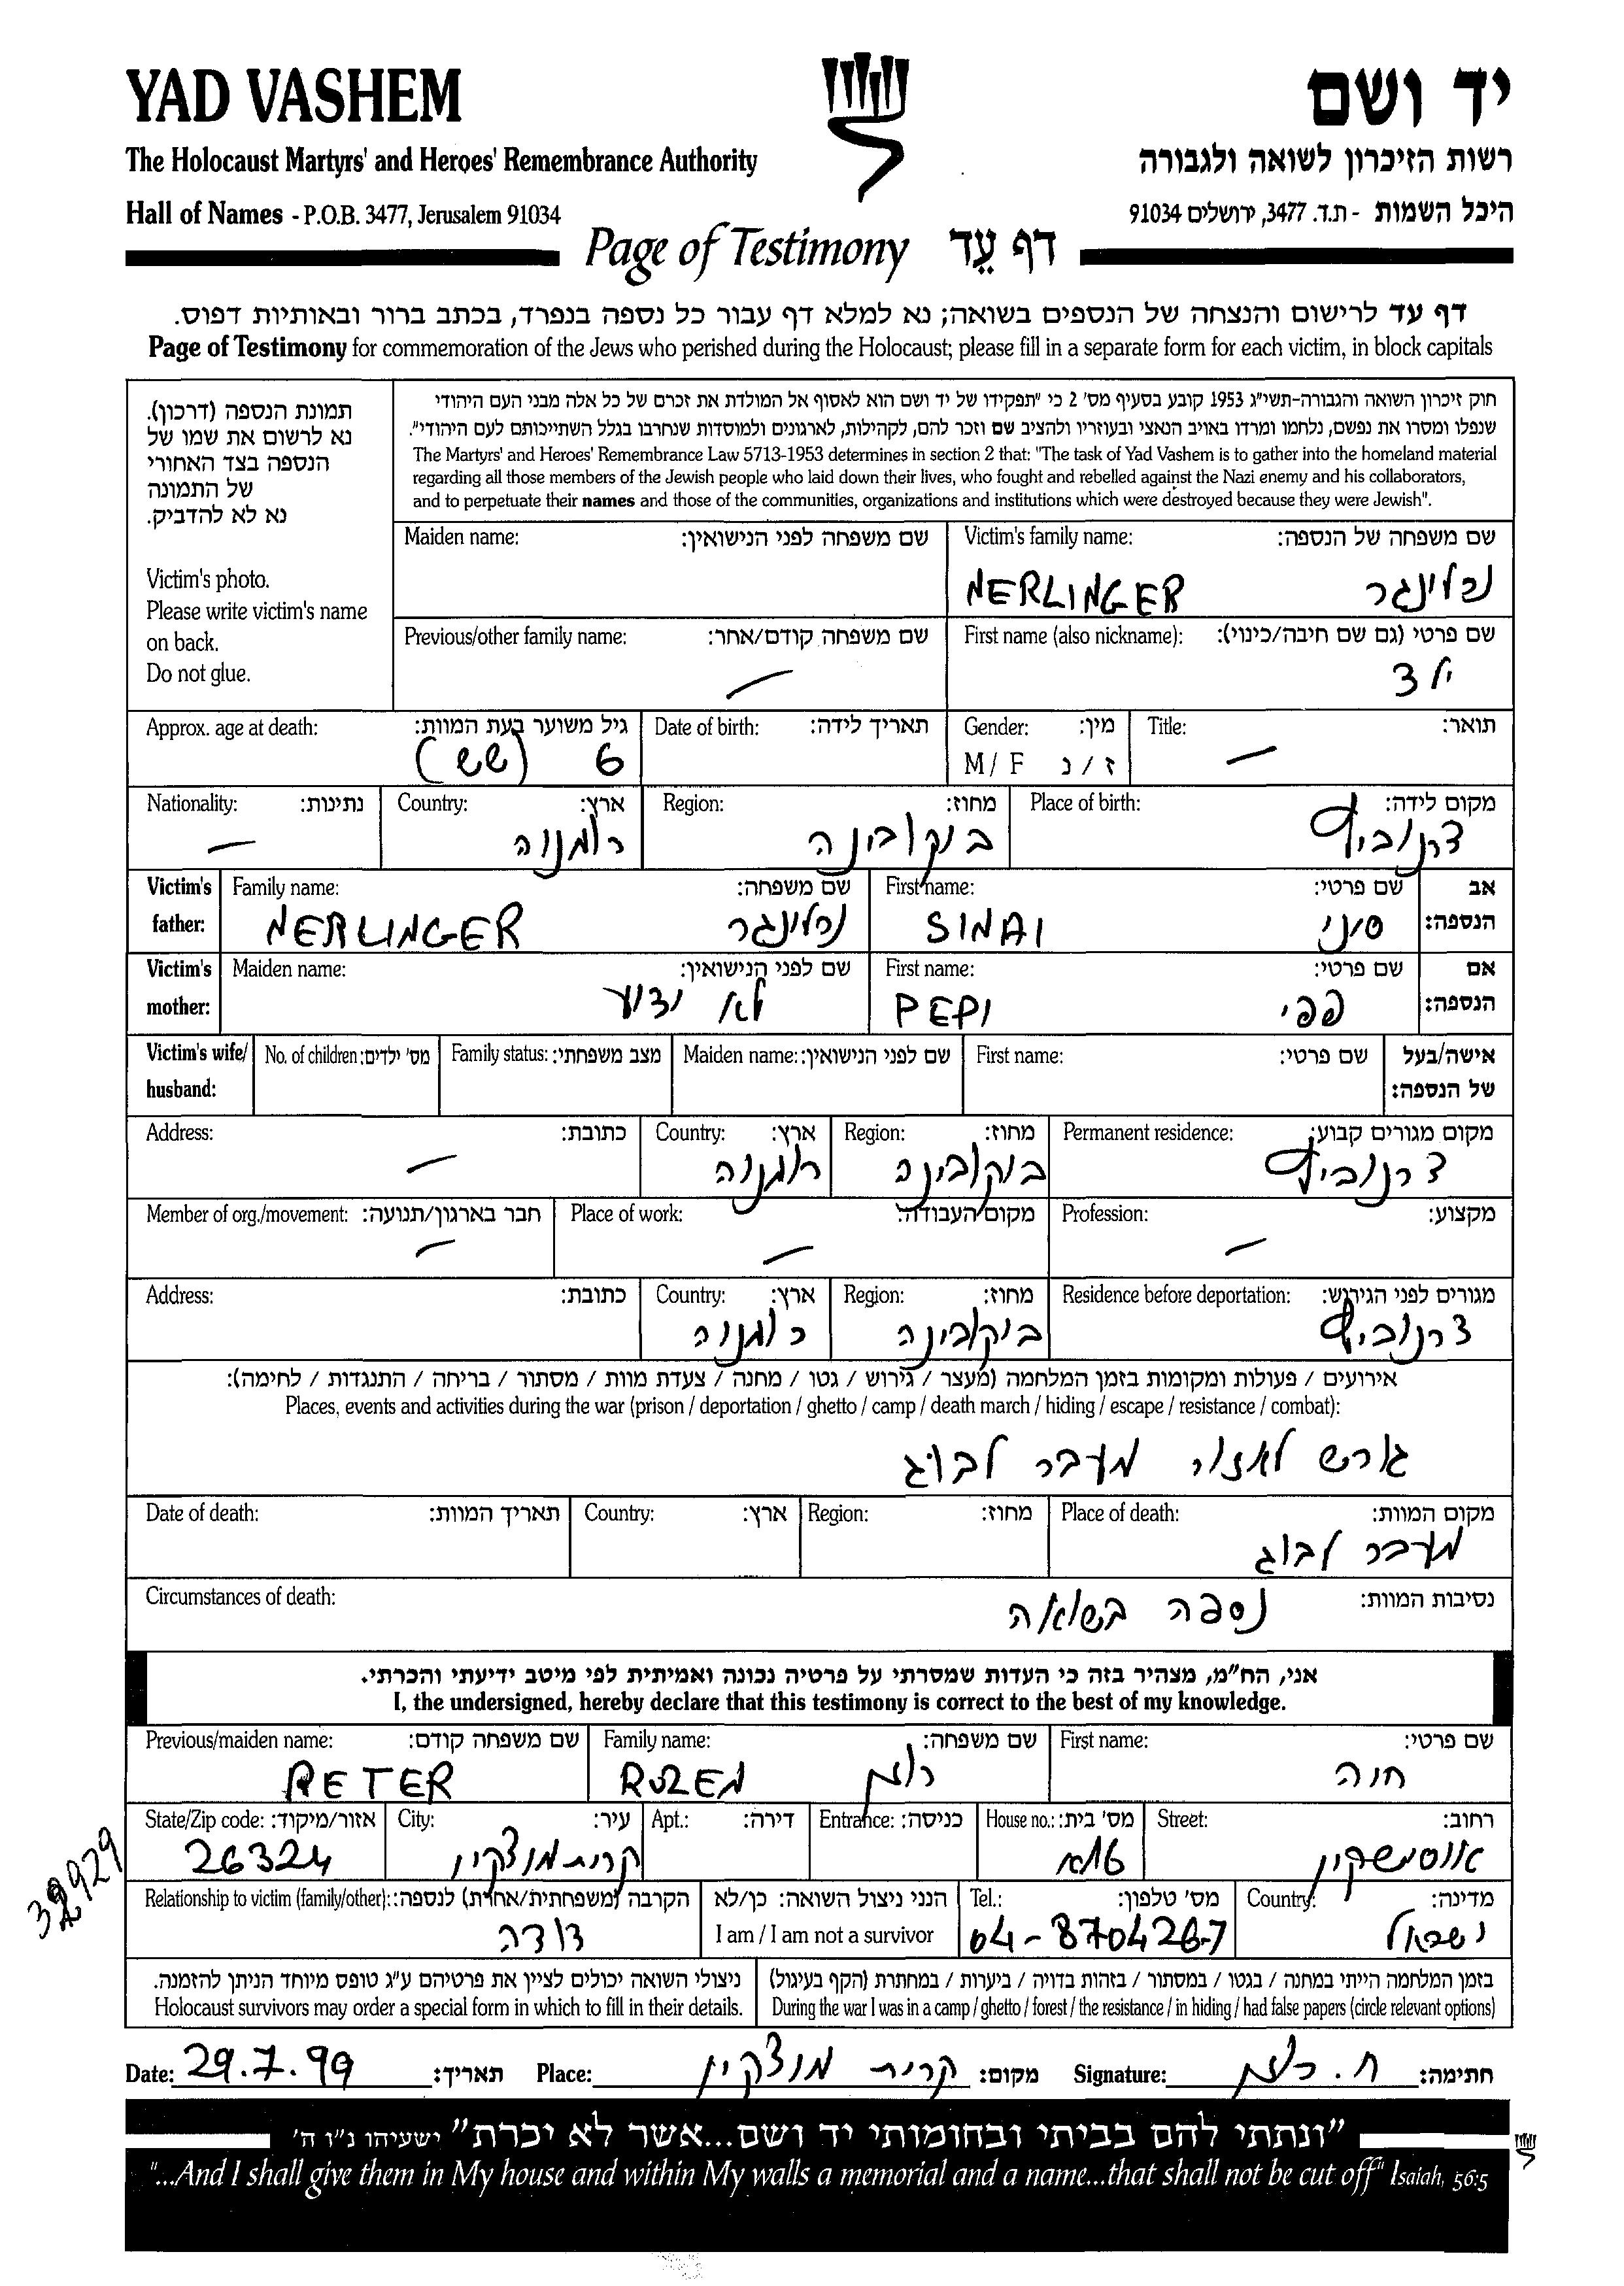 YAD VASHEM
יד ושם
The Holocaust Martyrs' and Heroes' Remembrance Authority
רשות הזיכרון לשואה ולגבורה
Hall of Names - P.O.B. 3477, Jerusalem 91034
היכל השמות - ת.ד. 3477, ירושלים 91034
Page of Testimony דף עֵד
דף עד לרישום והנצחה של הנספים בשואה; נא למלא דף עבור כל נספה בנפרד, בכתב ברור ובאותיות דפוס.
Page of Testimony for commemoration of the Jews who perished during the Holocaust; please fill in a separate form for each victim, in block capitals
תמונת הנספה (דרכון).
נא לרשום את שמו של
הנספה בצד האחורי
של התמונה
נא לא להדביק.
Victim's photo.
Please write victim's name
on back.
Do not glue.
חוק זיכרון השואה והגבורה-תשי"ג 1953 קובע בסעיף מס' 2 כי "תפקידו של יד ושם הוא לאסוף אל המולדת את זכרם של כל אלה מבני העם היהודי
שנפלו ומסרו את נפשם, נלחמו ומרדו באויב הנאצי ובעוזריו ולהציב שם וזכר להם, לקהילות, לארגונים ולמוסדות שנחרבו בגלל השתייכותם לעם היהודי".
The Martyrs' and Heroes' Remembrance Law 5713-1953 determines in section 2 that: "The task of Yad Vashem is to gather into the homeland material
regarding all those members of the Jewish people who laid down their lives, who fought and rebelled against the Nazi enemy and his collaborators,
and to perpetuate their names and those of the communities, organizations and institutions which were destroyed because they were Jewish".
Maiden name: שם משפחה לפני הנישואין:
Victim's family name: שם משפחה של הנספה:
NERLINGER נרלינגר
Previous/other family name: שם משפחה קודם/אחר:
—
First name (also nickname): שם פרטי (גם שם חיבה/כינוי):
ילד
Approx. age at death: גיל משוער בעת המוות:
6 (שש)
Date of birth: תאריך לידה:
Gender: מין:
M / F ז / נ
Title: תואר:
—
Nationality: נתינות:
—
Country: ארץ:
רומניה
Region: מחוז:
בוקובינה
Place of birth: מקום לידה:
צרנוביץ
Victim's father: אב הנספה:
Family name: שם משפחה:
NERLINGER נרלינגר
First name: שם פרטי:
SINAI סיני
Victim's mother: אם הנספה:
Maiden name: שם לפני הנישואין:
לא ידוע
First name: שם פרטי:
PEPI פפי
Victim's wife/ husband: אישה/בעל של הנספה:
No. of children: מס' ילדים:
Family status: מצב משפחתי:
Maiden name: שם לפני הנישואין:
First name: שם פרטי:
Address: כתובת:
—
Country: ארץ:
רומניה
Region: מחוז:
בוקובינה
Permanent residence: מקום מגורים קבוע:
צרנוביץ
Member of org./movement: חבר בארגון/תנועה:
—
Place of work: מקום העבודה:
—
Profession: מקצוע:
—
Address: כתובת:
Country: ארץ:
רומניה
Region: מחוז:
בוקובינה
Residence before deportation: מגורים לפני הגירוש:
צרנוביץ
אירועים / פעולות ומקומות בזמן המלחמה (מעצר / גירוש / גטו / מחנה / צעדת מוות / מסתור / בריחה / התנגדות / לחימה):
Places, events and activities during the war (prison / deportation / ghetto / camp / death march / hiding / escape / resistance / combat):
גורש לאזור מעבר לבוג
Date of death: תאריך המוות:
Country: ארץ:
Region: מחוז:
Place of death: מקום המוות:
מעבר לבוג
Circumstances of death: נסיבות המוות:
נספה בשואה
אני, הח"מ, מצהיר בזה כי העדות שמסרתי על פרטיה נכונה ואמיתית לפי מיטב ידיעתי והכרתי.
I, the undersigned, hereby declare that this testimony is correct to the best of my knowledge.
Previous/maiden name: שם משפחה קודם:
PETER
Family name: שם משפחה:
ROZEN רוזן
First name: שם פרטי:
חנה
State/Zip code: אזור/מיקוד:
26324
City: עיר:
קרית מוצקין
Apt.: דירה:
Entrance: כניסה:
House no.: מס' בית:
16א
Street: רחוב:
אוסישקין
Relationship to victim (family/other): הקרבה (משפחתית/אחרת) לנספה:
דודה
הנני ניצול השואה: כן/לא
I am / I am not a survivor
Tel.: מס' טלפון:
04-8704267
Country: מדינה:
ישראל
ניצולי השואה יכולים לציין את פרטיהם ע"ג טופס מיוחד הניתן להזמנה.
Holocaust survivors may order a special form in which to fill in their details.
בזמן המלחמה הייתי במחנה / בגטו / במסתור / בזהות בדויה / ביערות / במחתרת (הקף בעיגול)
During the war I was in a camp / ghetto / forest / the resistance / in hiding / had false papers (circle relevant options)
Date: 29.7.99 תאריך:
Place: קרית מוצקין מקום:
Signature: ח. רוזן חתימה:
"ונתתי להם בביתי ובחומותי יד ושם...אשר לא יכרת" ישעיהו נ"ו ה'
"...And I shall give them in My house and within My walls a memorial and a name...that shall not be cut off" Isaiah, 56:5